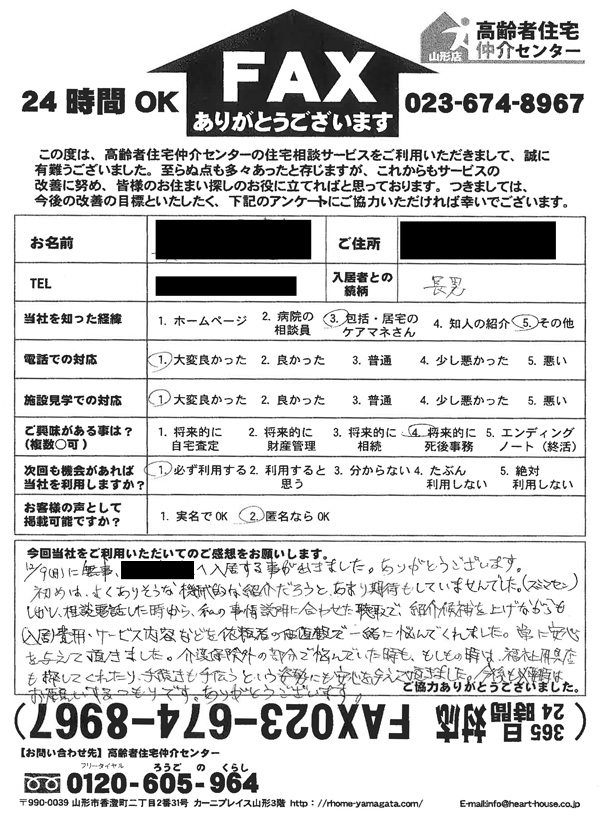 高齢者住宅
仲介センター
山形店
FAX
ありがとうございます
24時間OK
023-674-8967
この度は、高齢者住宅仲介センターの住宅相談サービスをご利用いただきまして、誠に
有難うございました。至らぬ点も多々あったと存じますが、これからもサービスの
改善に努め、皆様のお住まい探しのお役に立てればと思っております。つきましては、
今後の改善の目標といたしたく、下記のアンケートにご協力いただければ幸いでございます。
お名前 ご住所
TEL 入居者との続柄 長男
当社を知った経緯 1. ホームページ 2. 病院の相談員 3. 包括・居宅のケアマネさん 4. 知人の紹介 5. その他
電話での対応 1. 大変良かった 2. 良かった 3. 普通 4. 少し悪かった 5. 悪い
施設見学での対応 1. 大変良かった 2. 良かった 3. 普通 4. 少し悪かった 5. 悪い
ご興味がある事は？(複数○可) 1. 将来的に自宅査定 2. 将来的に財産管理 3. 将来的に相続 4. 将来的に死後事務 5. エンディングノート（終活）
次回も機会があれば当社を利用しますか？ 1. 必ず利用する 2. 利用すると思う 3. 分からない 4. たぶん利用しない 5. 絶対利用しない
お客様の声として掲載可能ですか？ 1. 実名でOK 2. 匿名ならOK
今回当社をご利用いただいてのご感想をお願いします。
に無事、へ入居する事が出きました。ありがとうございます。
初めは、よくありそうな機械的な紹介だろうと、あまり期待もしていませんでした。(スミマセン)
しかし、相談電話した時から、私の事情説明に合わせた聴取で、紹介候補を上げながらも
入居費用・サービス内容などを依頼者の価値観で一緒に悩んでくれました。常に安心
を与えて頂きました。介護保険外の部分で悩んでいた時も、もしもの時は、福祉用具店
も探してくれたり、手続きも手伝うという姿勢にも安心を与えて頂きました。
お願いするつもりです。ありがとうございます。
ご協力ありがとうございました。
365日24時間対応 FAX023-674-8967
【お問い合わせ先】高齢者住宅仲介センター
フリーダイヤル ろうご の くらし
0120-605-964
〒990-0039 山形市香澄町二丁目2番31号 カーニプレイス山形3階 http://rhome-yamagata.com/ E-mail:info@heart-house.co.jp